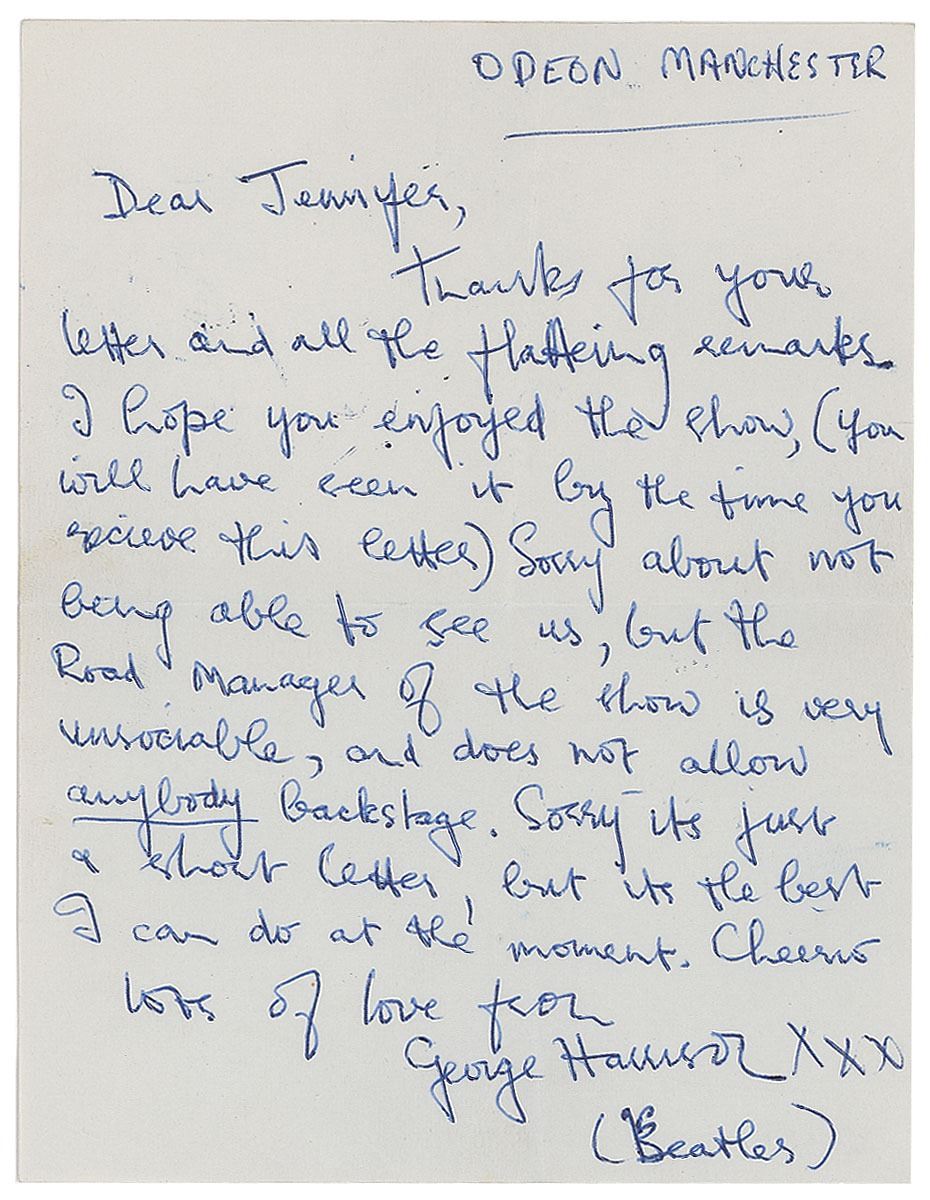 ODEON MANCHESTER
Dear Jennifer,
Thanks for your
letter and all the flattering remarks.
I hope you enjoyed the show, (you
will have seen it by the time you
recieve this letter) Sorry about not
being able to see us, but the
Road Manager of the show is very
unsociable, and does not allow
anybody backstage. Sorry its just
a short letter, but its the best
I can do at the moment. Cheerio
lots of love from
George Harrison XXX
(Beatles)